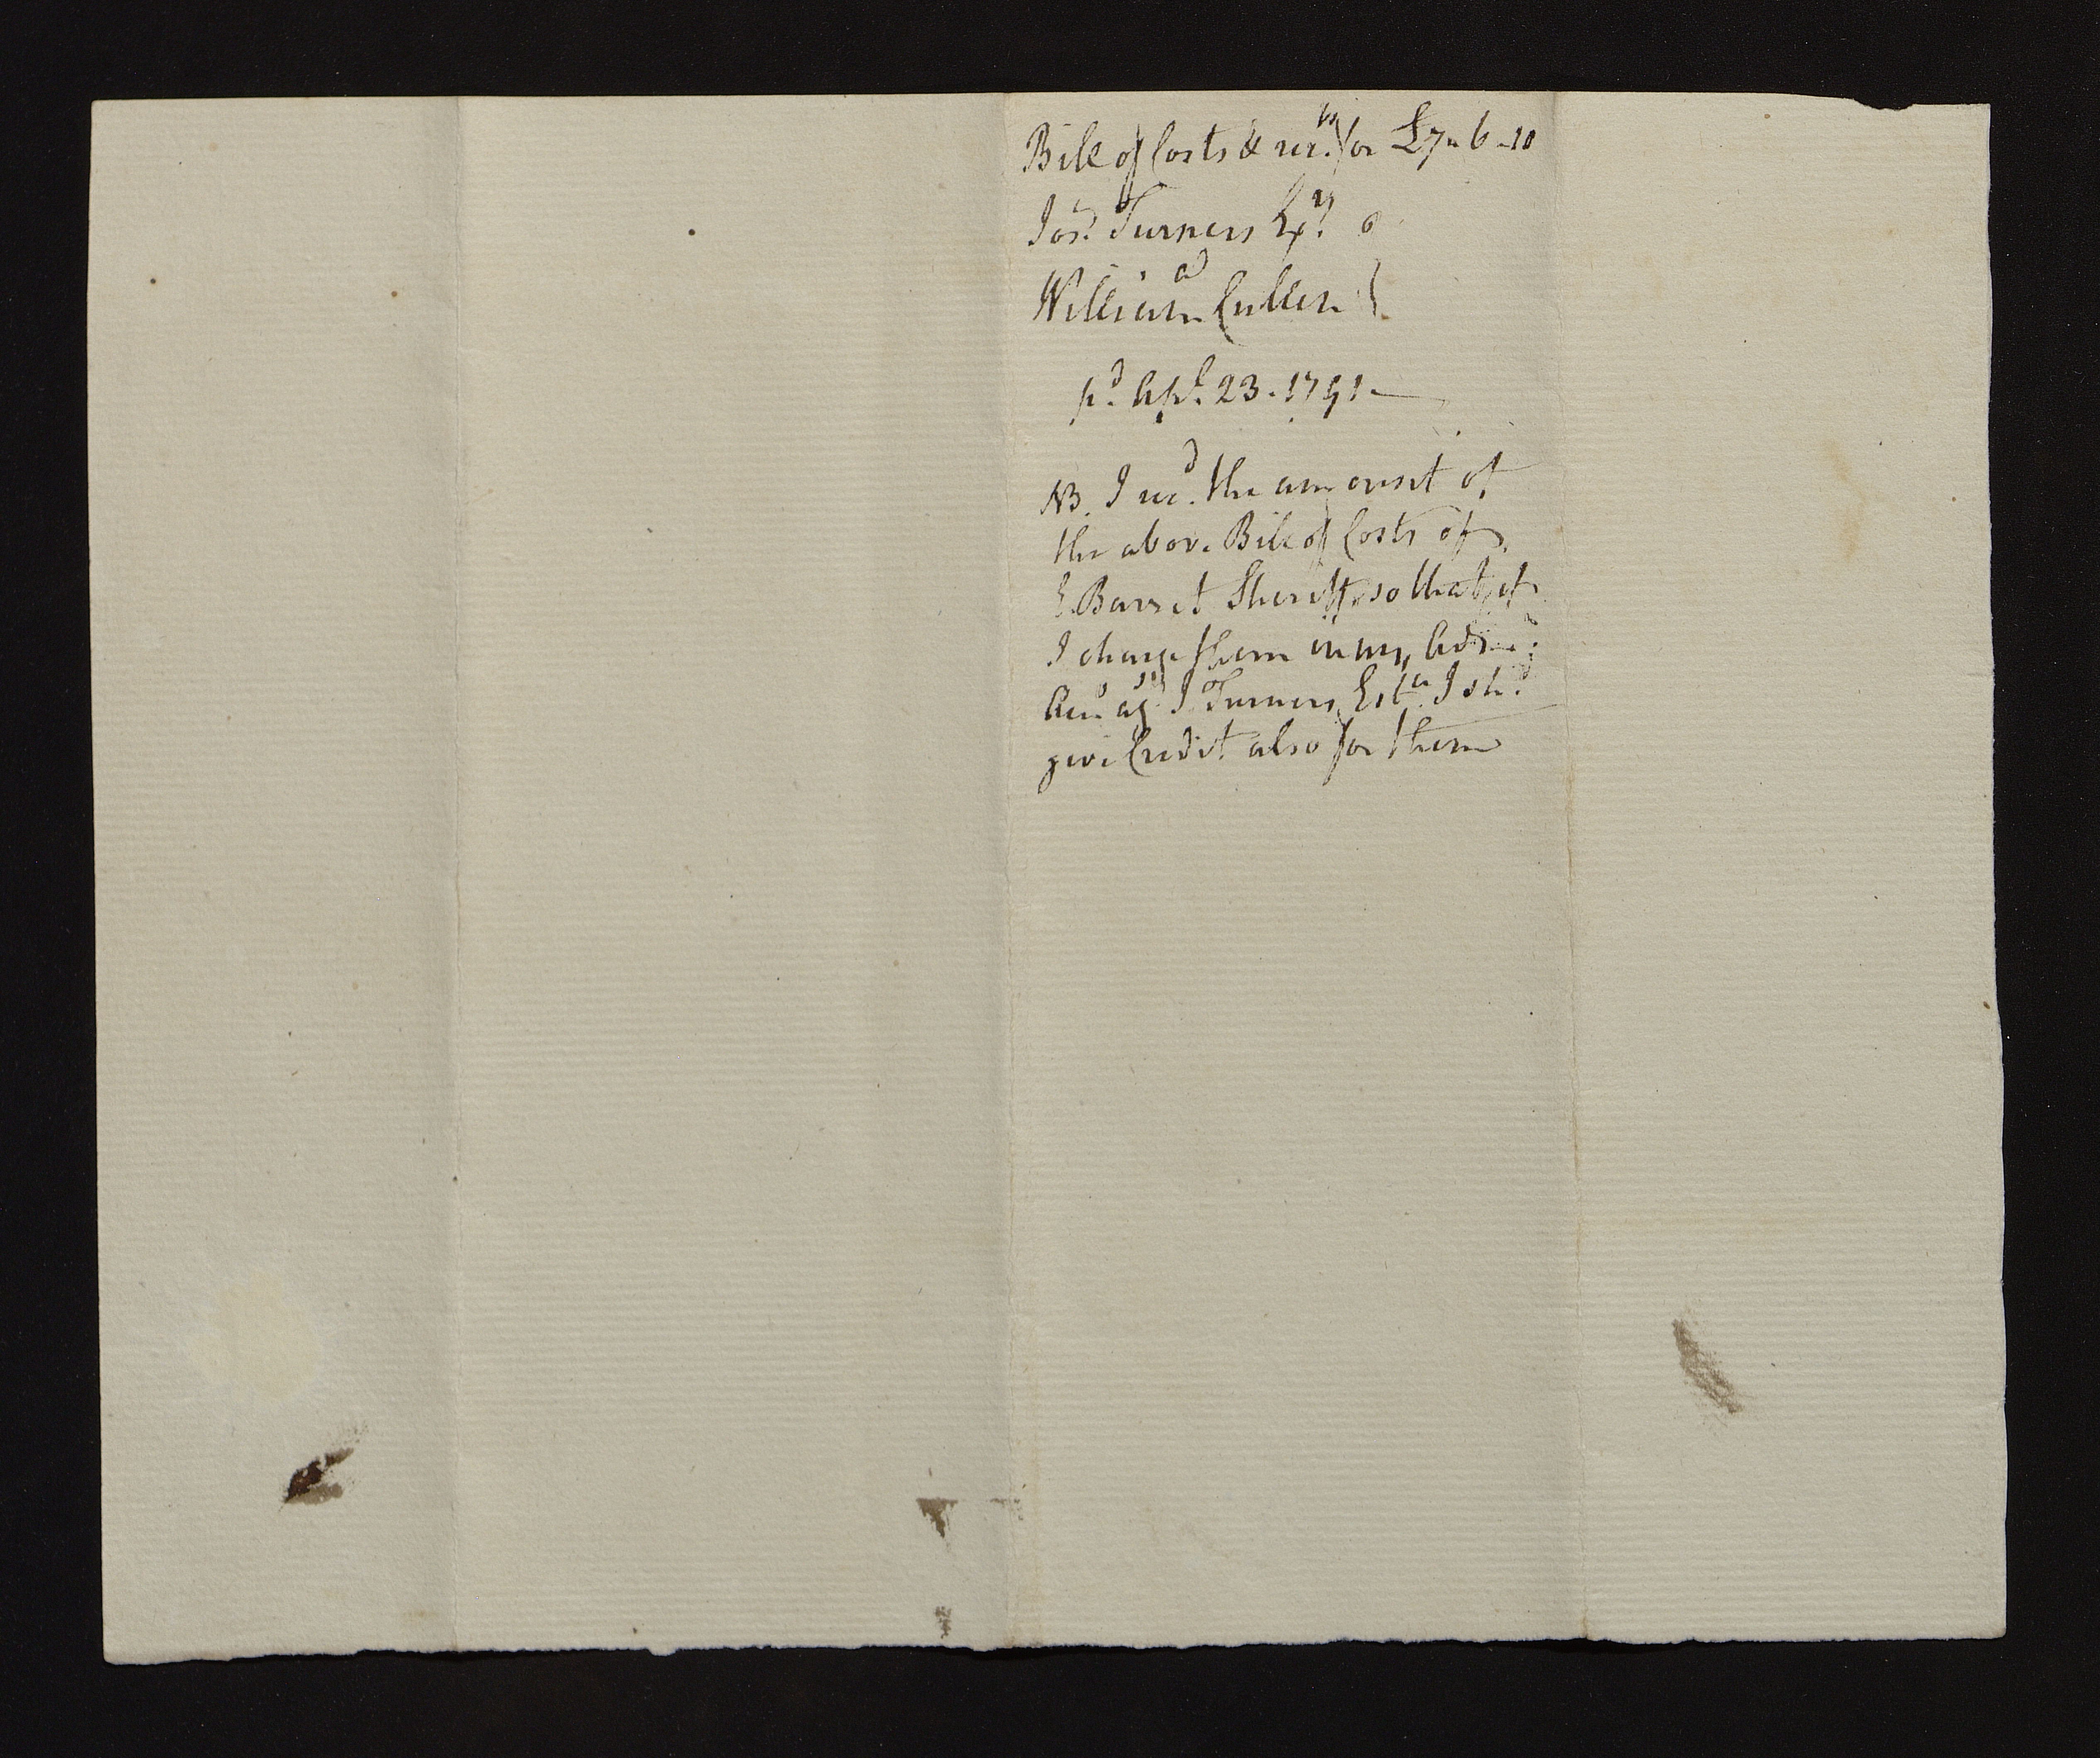 Bill of Costs & rect. for £7-6-10
Jos. Turners Exr.
ad
William Cullen
pd. Apl. 23. 1791
NB. I recd. the amount of
the above Bill of Costs of
Barret Sheriff so that if
I charge them in my
Acct. agst. J Turners Este. I shd.
give Credit also for them